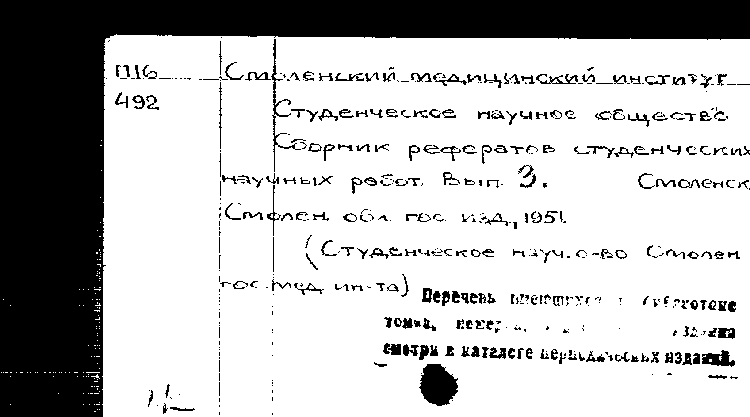 П16 Смоленский медицинский институт
492 Студенческое научное общество
Сборник рефератов студенческих
научных работ. Вып. 3. Смоленск
Смолен. обл. гос. изд., 1951
(Студенческое науч. о-во Смолен
гос. мед. ин-та)
Перечень имеющихся в библиотеке
томов,
смотри в каталоге периодических изданий.